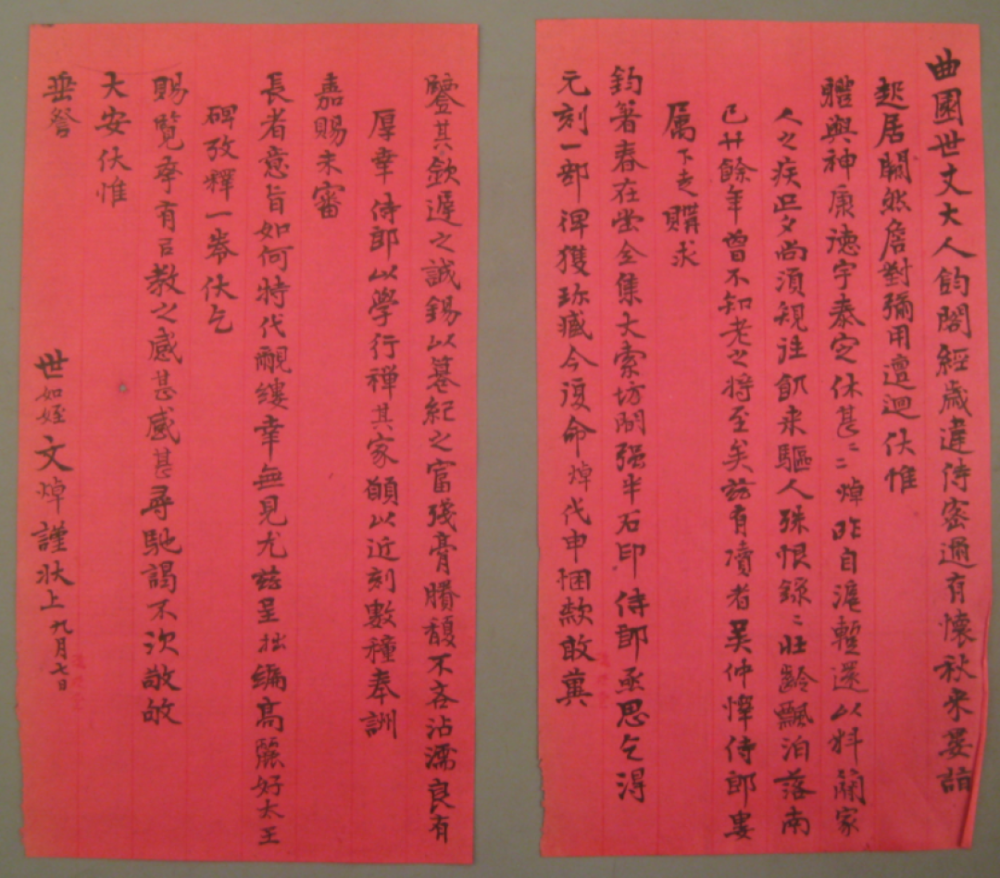 曲園世丈大人鈞閣經歲違侍密過有懷秋末晏詣
起居闕然詹對彌用邅迴伏惟
體與神康德宇泰定休甚二二焯昨自滬蹔還以料簡家
人之疾旦夕尚須規往飢來驅人殊恨錄二壯齡飄泊落南
已廿餘年曾不知老之將至矣茲有凟者吳仲懌侍郎婁
屬下走購求
鈞箸春在堂全集大索坊間强半石印侍郎亟思乞得
元刻一部俾獲珍臧今復命焯代申悃款敢冀
鑒其欽遲之誠錫以篹紀之富殘膏賸馥不吝沾濡良有
厚幸侍郎以學行禪其家願以近刻數種奉詶
嘉賜未審
長者意旨如何特代覼縷幸無見尤茲呈拙編高麗好太王
碑攷釋一卷伏乞
賜覽孯有以教之感甚感甚尋馳謁不次敬敂
大安伏惟
垂詧
世如姪文焯謹狀上九月七日